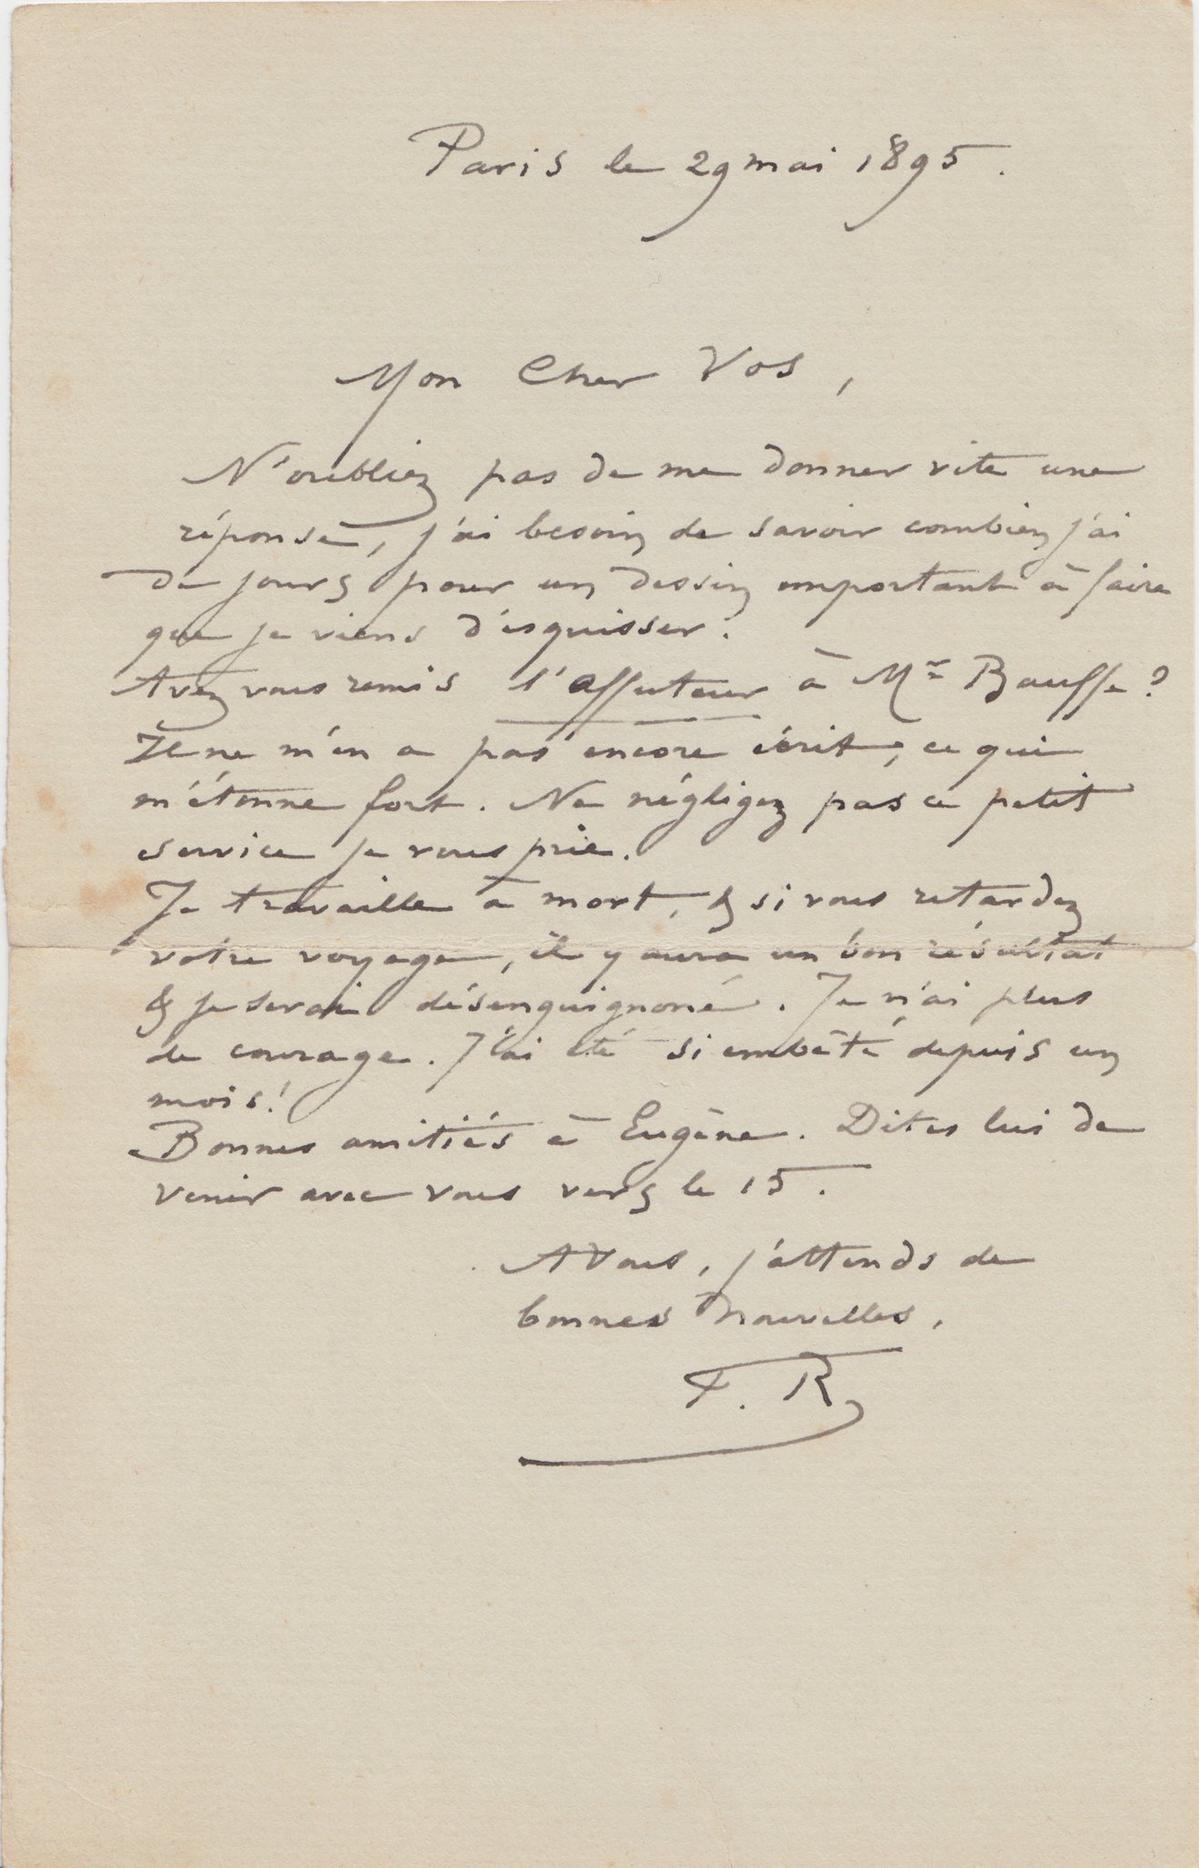 Paris le 29 mai 1895.
Mon Cher Vos,
N'oubliez pas de me donner vite une
réponse, j'ai besoin de savoir combien j'ai
de jours pour un dessin important à faire
que je viens d'esquisser.
Avez vous remis l'affuteur à Mr Bauffe?
Il ne m'en a pas encore écrit, ce qui
m'étonne fort. Ne négligez pas ce petit
service je vous prie.
Je travaille à mort, & si vous retardez
votre voyage, il y aura un bon résultat
& je serai désenguignoné. Je n'ai plus
de courage. J'ai été si embêté depuis un
mois!
Bonnes amitiés à Eugène. Dites lui de
venir avec vous vers le 15.
A Vous, j'attends de
bonnes nouvelles,
F. R